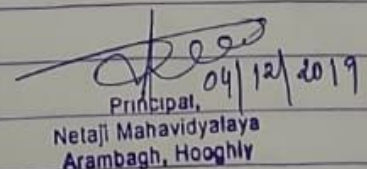 04/12/2019
Principal,
Netaji Mahavidyalaya
Arambagh, Hooghly